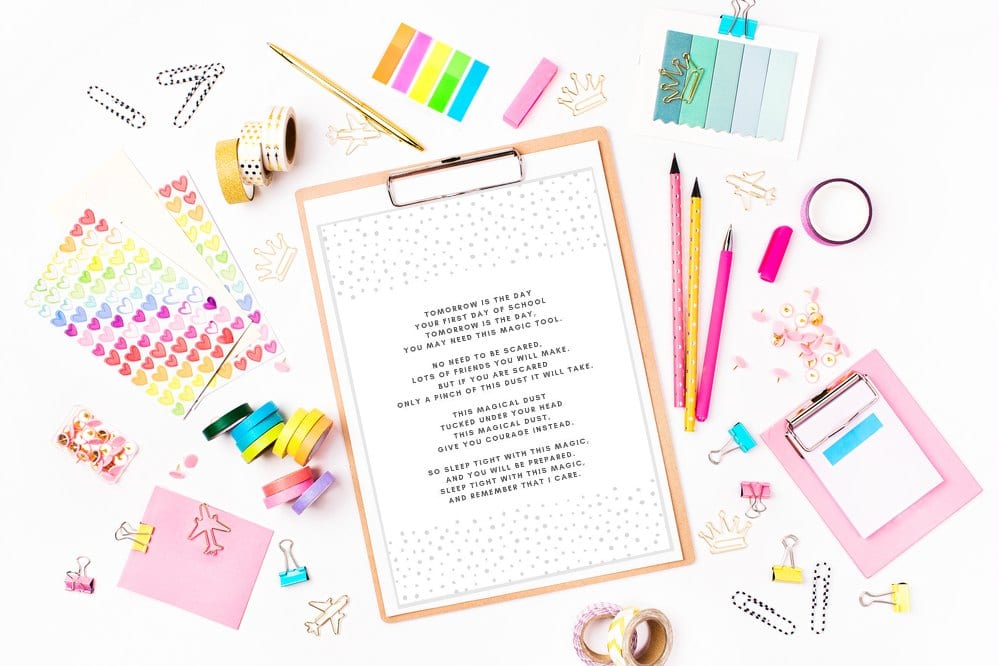 TOMORROW IS THE DAY
YOUR FIRST DAY OF SCHOOL
TOMORROW IS THE DAY,
YOU MAY NEED THIS MAGIC TOOL.
NO NEED TO BE SCARED,
LOTS OF FRIENDS YOU WILL MAKE.
BUT IF YOU ARE SCARED
ONLY A PINCH OF THIS DUST IT WILL TAKE.
THIS MAGICAL DUST
TUCKED UNDER YOUR HEAD
THIS MAGICAL DUST,
GIVE YOU COURAGE INSTEAD.
SO SLEEP TIGHT WITH THIS MAGIC,
AND YOU WILL BE PREPARED.
SLEEP TIGHT WITH THIS MAGIC,
AND REMEMBER THAT I CARE.